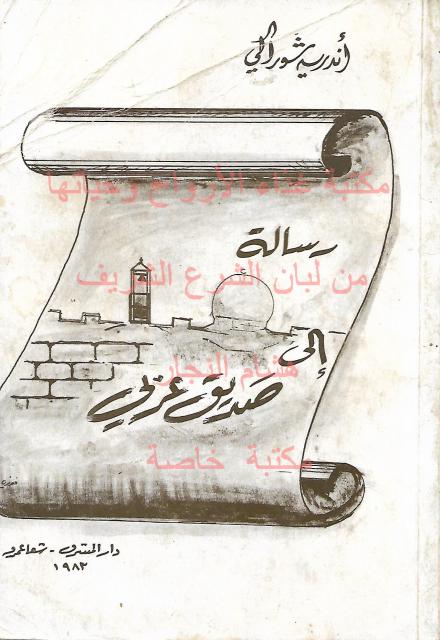 أندريه شوراكي
مكتبة غذاء الأرواح وحياتها
رسالة
من لبان الشرع الشريف
إلى
هشام النجار
صديق عربي
مكتبة خاصة
دار المشرق - شفاعمرو
١٩٨٢